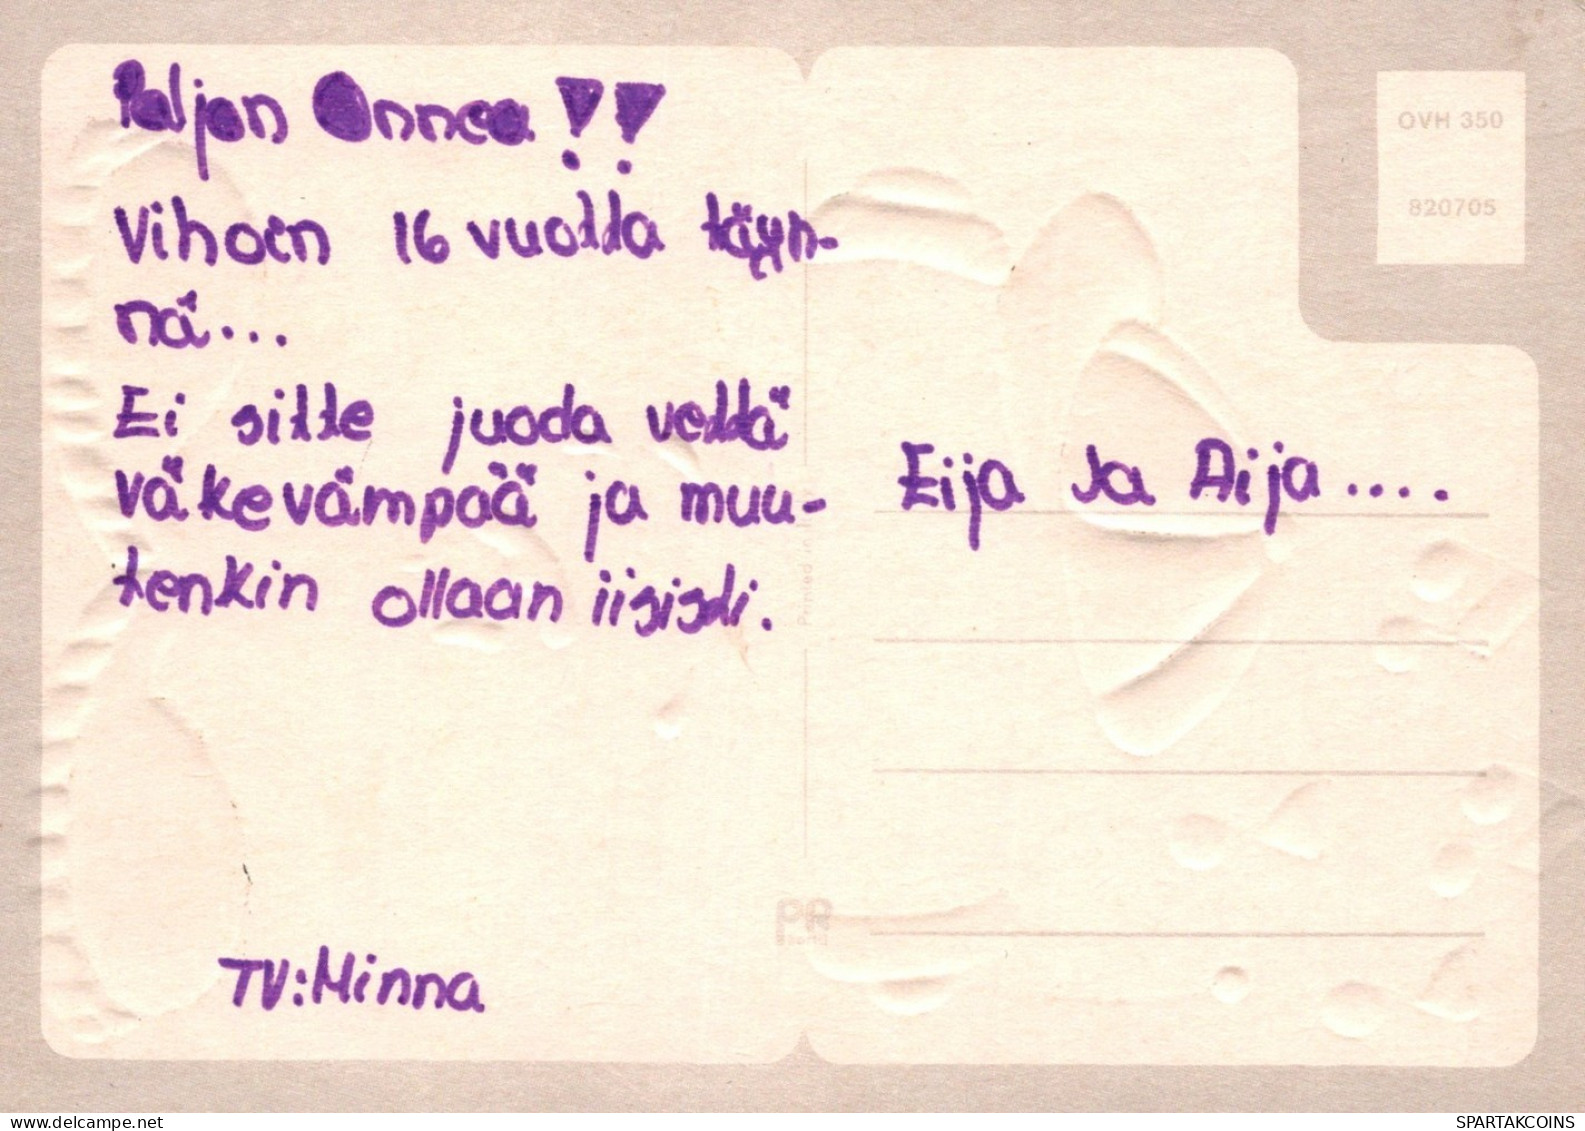 Paljon Onnea !!
Vihoin 16 vuotta täyn-
nä...
Ei sitte juoda vettä
väkevämpää ja muu-
tenkin ollaan iisisti.
TV: Minna
OVH 350
820705
Eija Ja Aija....
Printed in
PA
SPARTAKCOINS